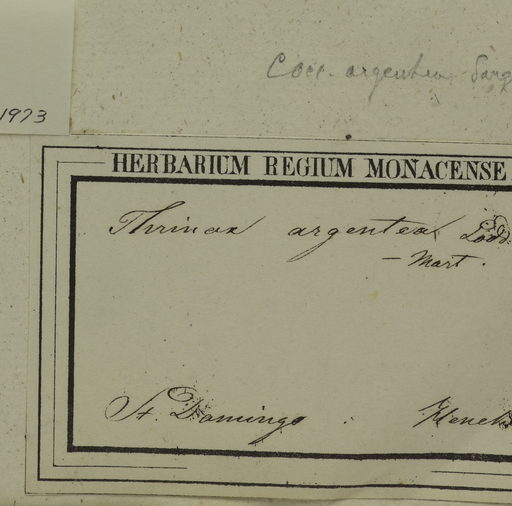 Cocc. argentea Sarg
1973
HERBARIUM REGIUM MONACENSE.
Thrinax argentea Lodd.
— Mart.
St. Domingo.